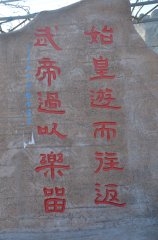 始皇遊而往返
武帝過以樂留